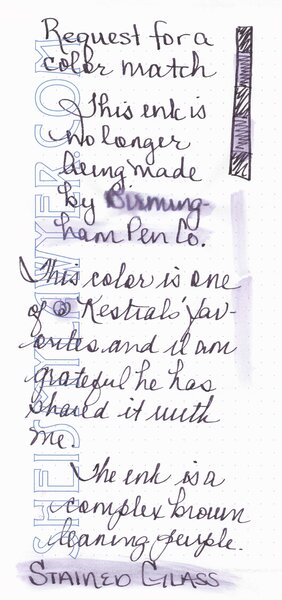 Request for a
color match
This ink is
no longer
being made
by Birming-
ham Pen Co.
This color is one
of @Kestrals' fav-
orites and I am
grateful he has
shared it with
me.
The ink is a
complex brown
leaning purple.
STAINED GLASS
SHEISMYLAWYER.COM